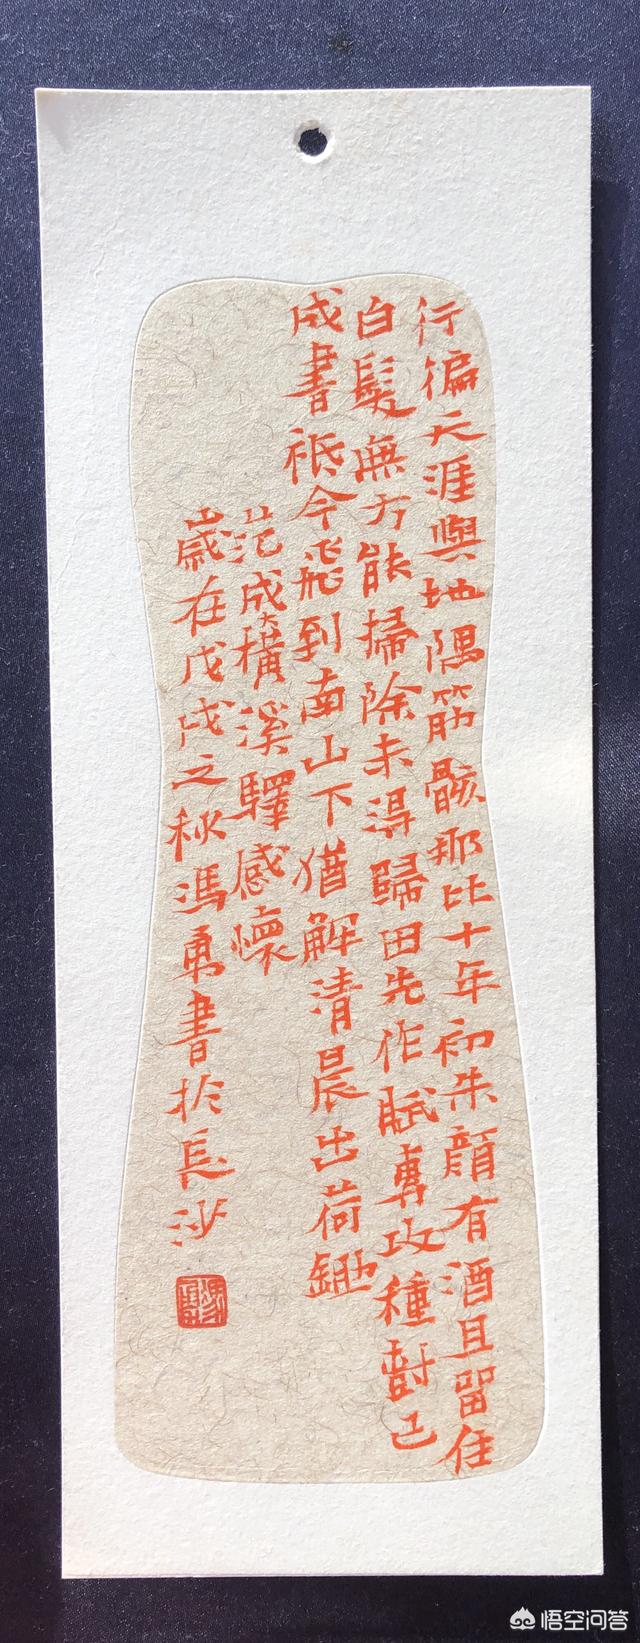 行徧天涯與地隅筋骸那比十年初朱顏有酒且留住
白髮無方能掃除未得歸田先作賦專攻種樹已
成書祇今飛到南山下猶解清晨出荷鋤
范成大橫溪驛感懷
歲在戊戌之秋馮勇書於長沙
悟空问答